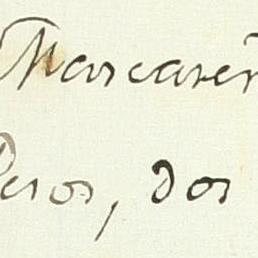 Mascareñ
Pesos, dos